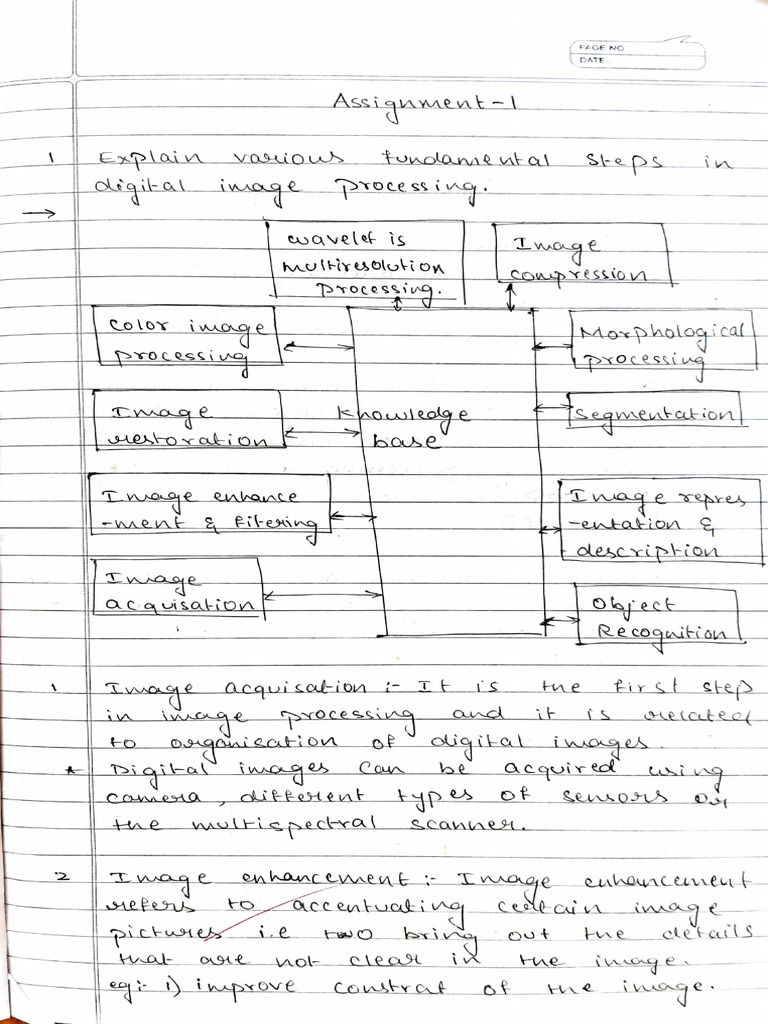 PAGE NO
DATE
Assignment-1
1 Explain various fundamental steps in
digital image processing.
→
wavelet is
multiresolution
processing.
Image
compression
Color image
processing
Morphological
processing
Image
restoration
Knowledge
base
Segmentation
Image enhance
-ment & filtering
Image repres
-entation &
description
Image
acquisation
Object
Recognition
1 Image acquisation :- It is the first step
in image processing and it is related
to organisation of digital images.
* Digital images can be acquired using
camera, different types of sensors or
the multispectral scanner.
2 Image enhancement :- Image enhancement
refers to accentuating certain image
pictures i.e two bring out the details
that are not clear in the image.
eg:- i) improve constrat of the image.